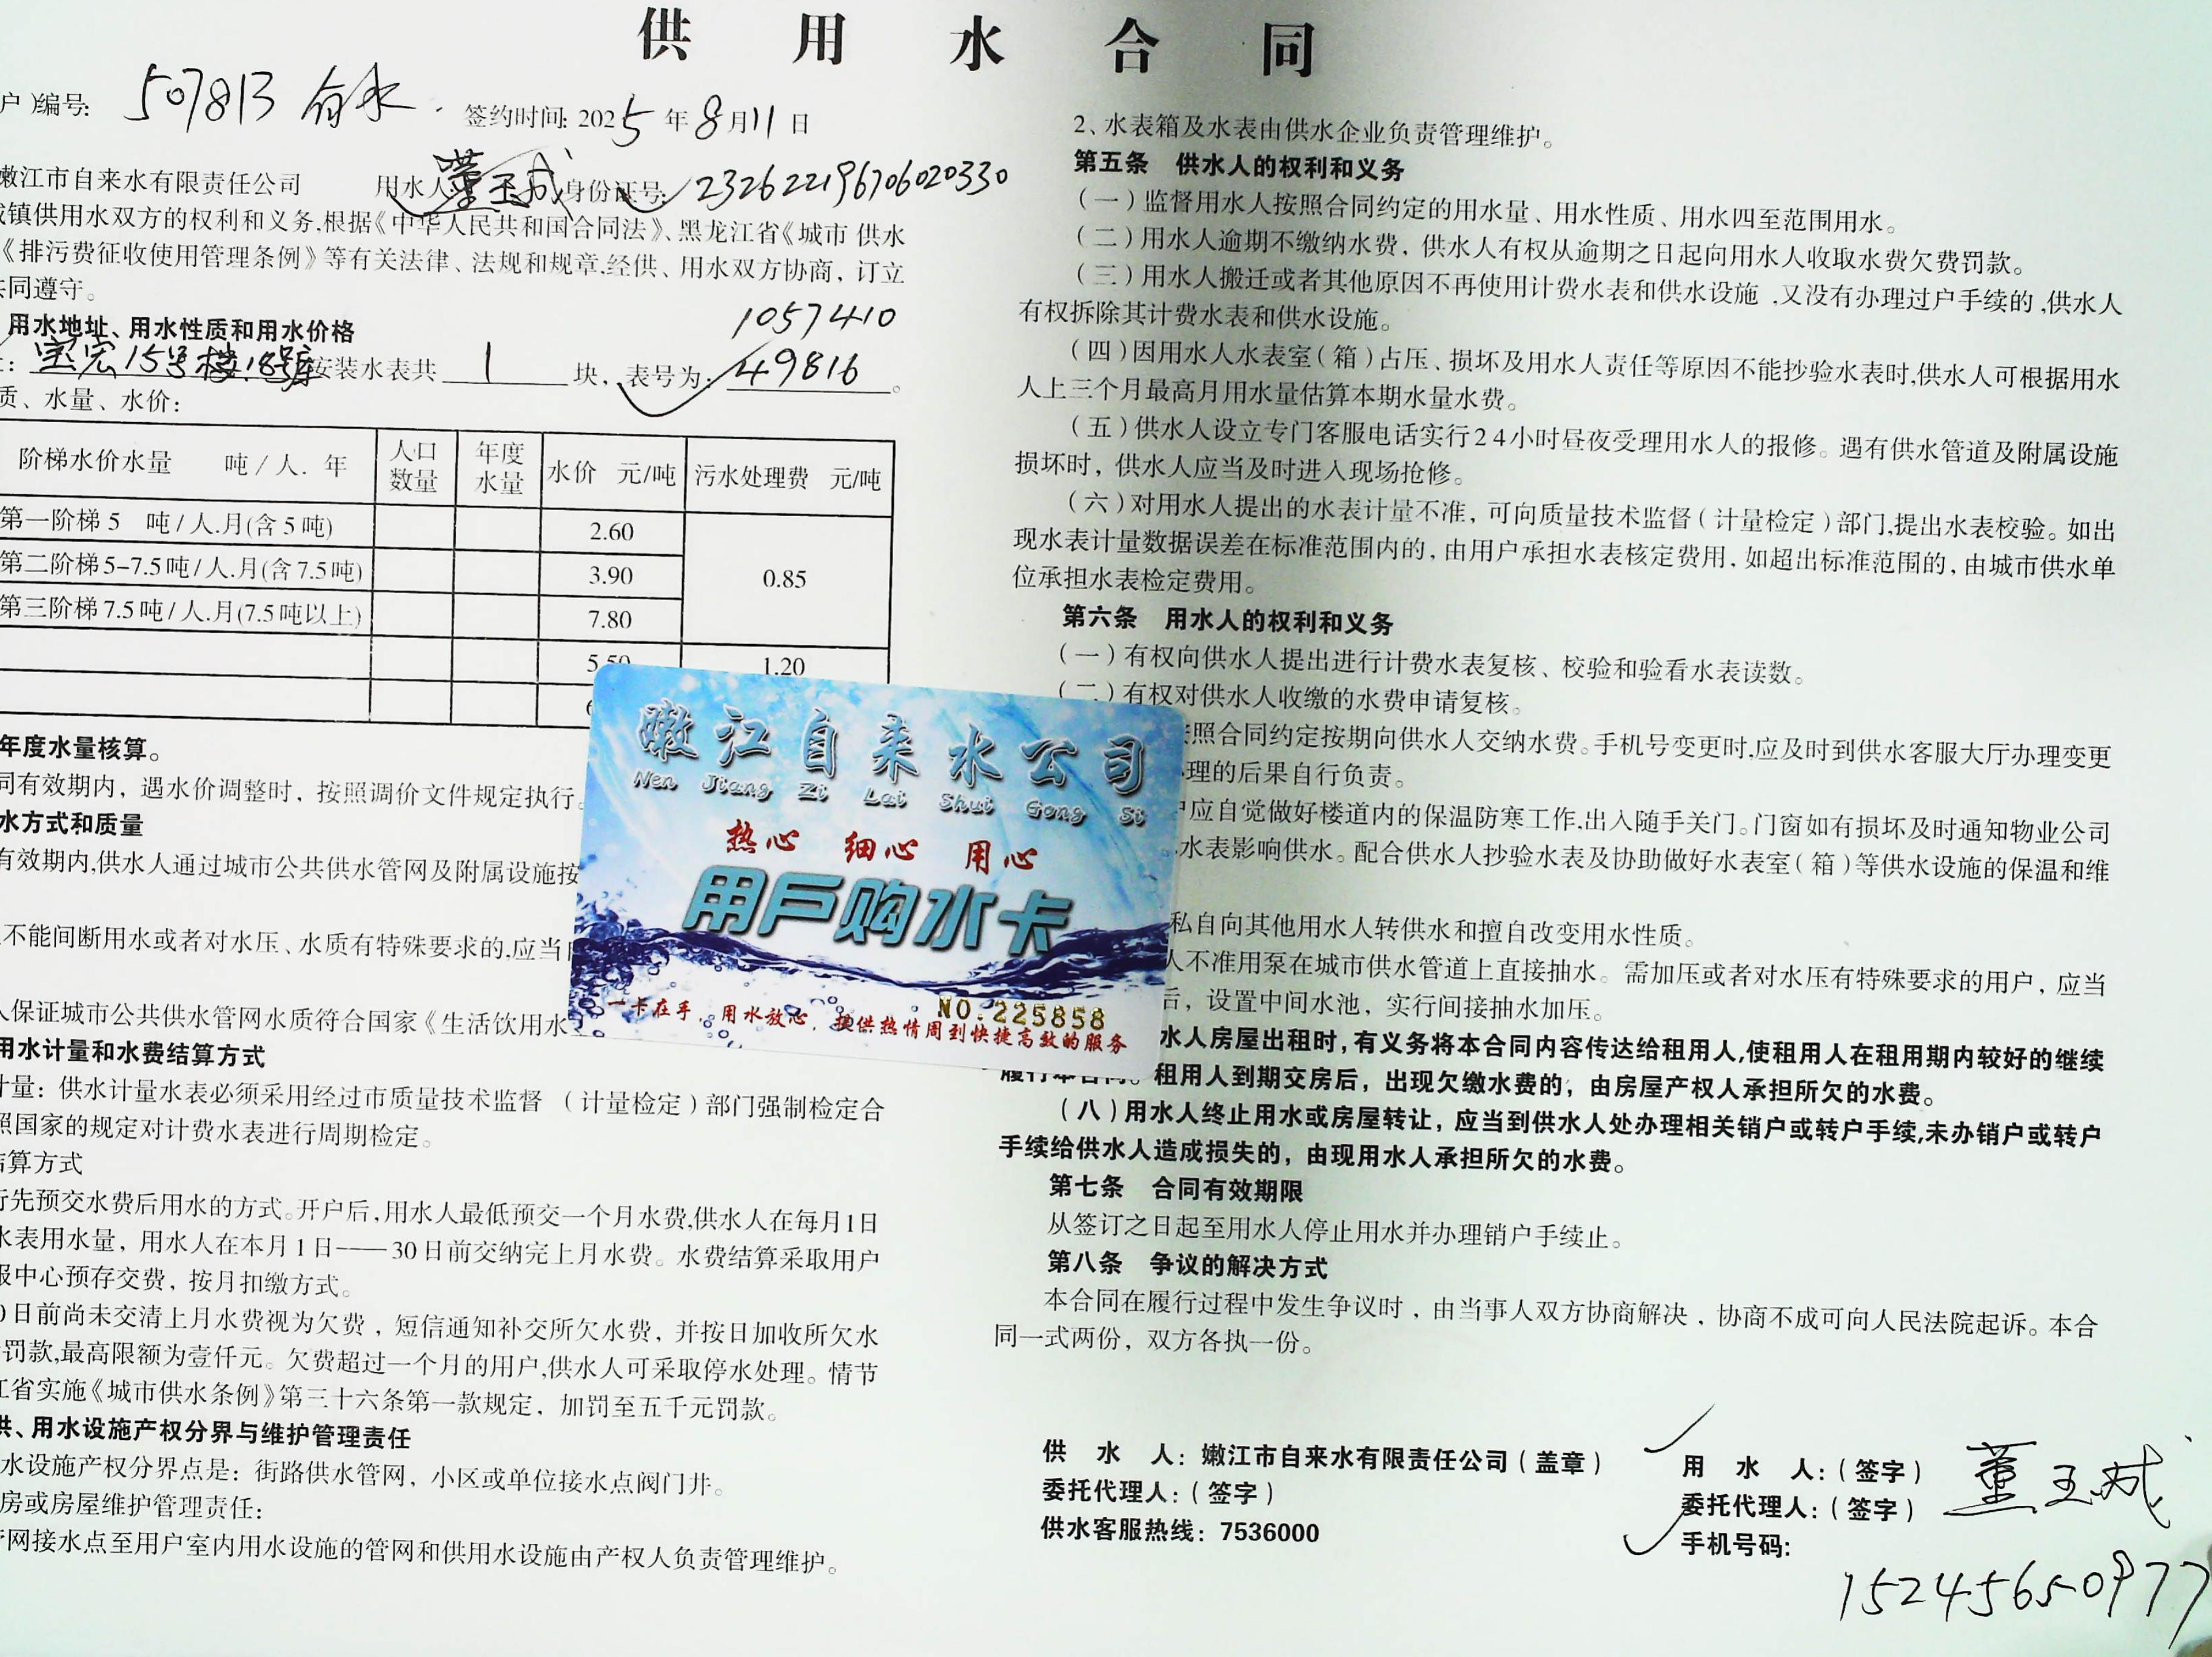 供用水合同
户)编号: 507813 签约时间: 2025年8月11日
嫩江市自来水有限责任公司 用水人 董玉成 身份证号: 232622196706020330
城镇供用水双方的权利和义务,根据《中华人民共和国合同法》、黑龙江省《城市供水
《排污费征收使用管理条例》等有关法律、法规和规章,经供、用水双方协商，订立
共同遵守。
用水地址、用水性质和用水价格
1057410
宝宏15号楼18号库 安装水表共 1 块，表号为: 49816。
质、水量、水价:
阶梯水价水量 吨/人.年 人口数量 年度水量 水价 元/吨 污水处理费 元/吨
第一阶梯5 吨/人.月(含5吨) 2.60
第二阶梯5-7.5吨/人.月(含7.5吨) 3.90 0.85
第三阶梯7.5吨/人.月(7.5吨以上) 7.80
5.50 1.20
年度水量核算。
同有效期内，遇水价调整时，按照调价文件规定执行。
水方式和质量
有效期内,供水人通过城市公共供水管网及附属设施按
不能间断用水或者对水压、水质有特殊要求的,应当
保证城市公共供水管网水质符合国家《生活饮用水
用水计量和水费结算方式
计量：供水计量水表必须采用经过市质量技术监督（计量检定）部门强制检定合
照国家的规定对计费水表进行周期检定。
结算方式
行先预交水费后用水的方式。开户后,用水人最低预交一个月水费,供水人在每月1日
水表用水量，用水人在本月1日——30日前交纳完上月水费。水费结算采取用户
服中心预存交费，按月扣缴方式。
0日前尚未交清上月水费视为欠费，短信通知补交所欠水费，并按日加收所欠水
罚款,最高限额为壹仟元。欠费超过一个月的用户,供水人可采取停水处理。情节
江省实施《城市供水条例》第三十六条第一款规定，加罚至五千元罚款。
供、用水设施产权分界与维护管理责任
水设施产权分界点是：街路供水管网，小区或单位接水点阀门井。
房或房屋维护管理责任:
网接水点至用户室内用水设施的管网和供用水设施由产权人负责管理维护。
2、水表箱及水表由供水企业负责管理维护。
第五条 供水人的权利和义务
(一)监督用水人按照合同约定的用水量、用水性质、用水四至范围用水。
(二)用水人逾期不缴纳水费，供水人有权从逾期之日起向用水人收取水费欠费罚款。
(三)用水人搬迁或者其他原因不再使用计费水表和供水设施,又没有办理过户手续的,供水人
有权拆除其计费水表和供水设施。
(四)因用水人水表室(箱)占压、损坏及用水人责任等原因不能抄验水表时,供水人可根据用水
人上三个月最高月用水量估算本期水量水费。
(五)供水人设立专门客服电话实行24小时昼夜受理用水人的报修。遇有供水管道及附属设施
损坏时，供水人应当及时进入现场抢修。
(六)对用水人提出的水表计量不准，可向质量技术监督(计量检定)部门,提出水表校验。如出
现水表计量数据误差在标准范围内的，由用户承担水表核定费用，如超出标准范围的，由城市供水单
位承担水表检定费用。
第六条 用水人的权利和义务
(一)有权向供水人提出进行计费水表复核、校验和验看水表读数。
(二)有权对供水人收缴的水费申请复核。
照合同约定按期向供水人交纳水费。手机号变更时,应及时到供水客服大厅办理变更
理的后果自行负责。
户应自觉做好楼道内的保温防寒工作,出入随手关门。门窗如有损坏及时通知物业公司
水表影响供水。配合供水人抄验水表及协助做好水表室(箱)等供水设施的保温和维
私自向其他用水人转供水和擅自改变用水性质。
人不准用泵在城市供水管道上直接抽水。需加压或者对水压有特殊要求的用户，应当
后，设置中间水池，实行间接抽水加压。
水人房屋出租时,有义务将本合同内容传达给租用人,使租用人在租用期内较好的继续
履行本合同。租用人到期交房后，出现欠缴水费的，由房屋产权人承担所欠的水费。
(八)用水人终止用水或房屋转让，应当到供水人处办理相关销户或转户手续,未办销户或转户
手续给供水人造成损失的，由现用水人承担所欠的水费。
第七条 合同有效期限
从签订之日起至用水人停止用水并办理销户手续止。
第八条 争议的解决方式
本合同在履行过程中发生争议时，由当事人双方协商解决，协商不成可向人民法院起诉。本合
同一式两份，双方各执一份。
供水人：嫩江市自来水有限责任公司(盖章)
委托代理人:(签字)
供水客服热线：7536000
用水人:(签字) 董玉成
委托代理人:(签字)
手机号码:
15245650977
嫩江自来水公司
Nen Jiang Zi Lai Shui Gong Si
热心 细心 用心
用户购水卡
NO.225858
一卡在手，用水放心，提供热情周到快捷高效的服务